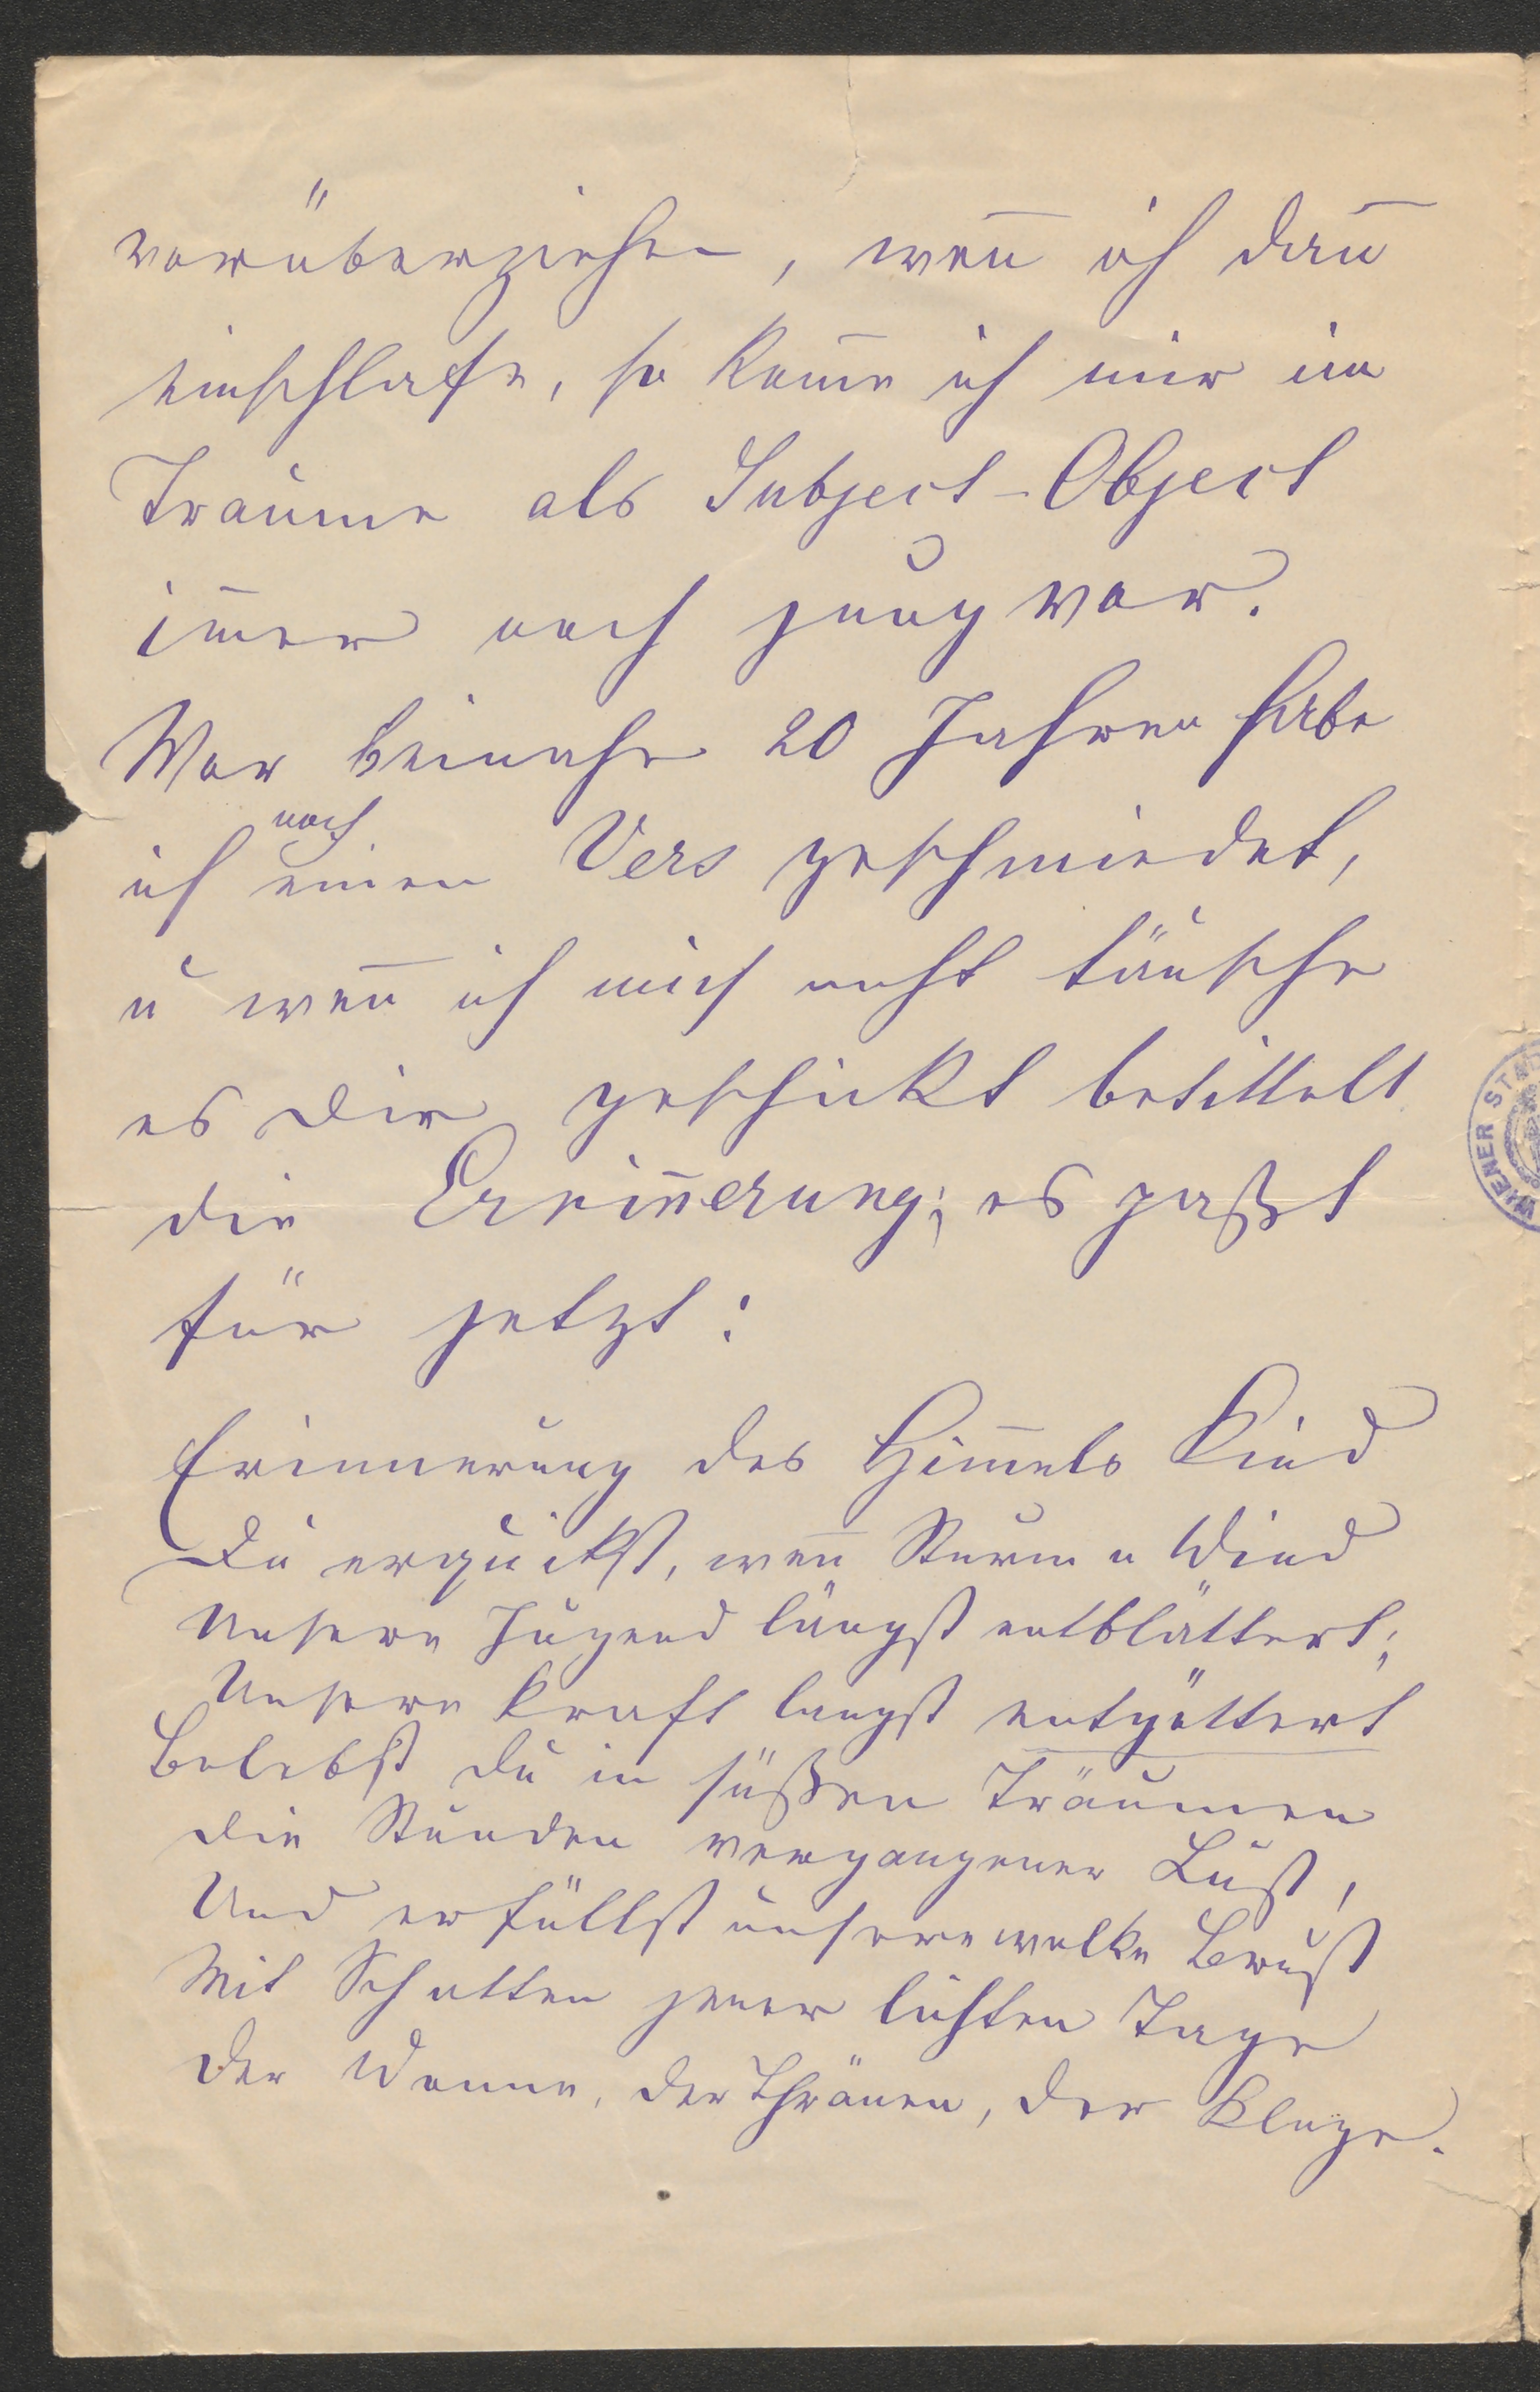 vorüberziehen, weñ ich dañ
einschlafe, so kom̃e ich mir im
Traume als Subject-Object
im̃er noch jung vor.
Vor beinahe 20 Jahren habe
noch
ich einen Vers geschmiedet,
u weñ ich mich nicht täusche
es dir geschickt betittelt
die Eriñerung; es paßt
für jetzt:
Erinnerung des Him̃els Kind
Du erquickst, weñ Sturm u Wind
Unsere Jugend längst entblättert;
Unsere Kraft längst entgöttert
Belebst du in süßen Träumen
die Stunden vergangener Lust,
Und erfüllst unsere welke Brust
Mit Schatten jener lichten Tage
Der Wonne, der Thränen, der Klage.
WIENER STAD